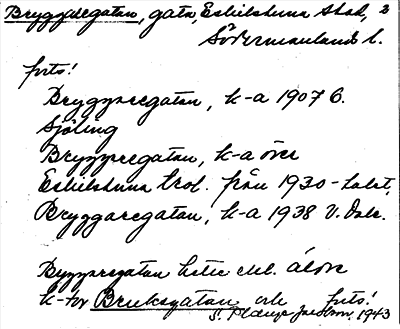 Bryggaregatan, gata, Eskilstuna stad, 2
Södermanlands l.
forts!
Bryggaregatan, k-a 1907 C.
Sjöling
Bryggaregatan, k-a över
Eskilstuna trol. från 1930-talet,
Bryggaregatan, k-a 1938 V. Dahl.
Bryggaregatan hette enl. äldre
k-or Bruksgatan och forts!
S. Jacobson, 1943